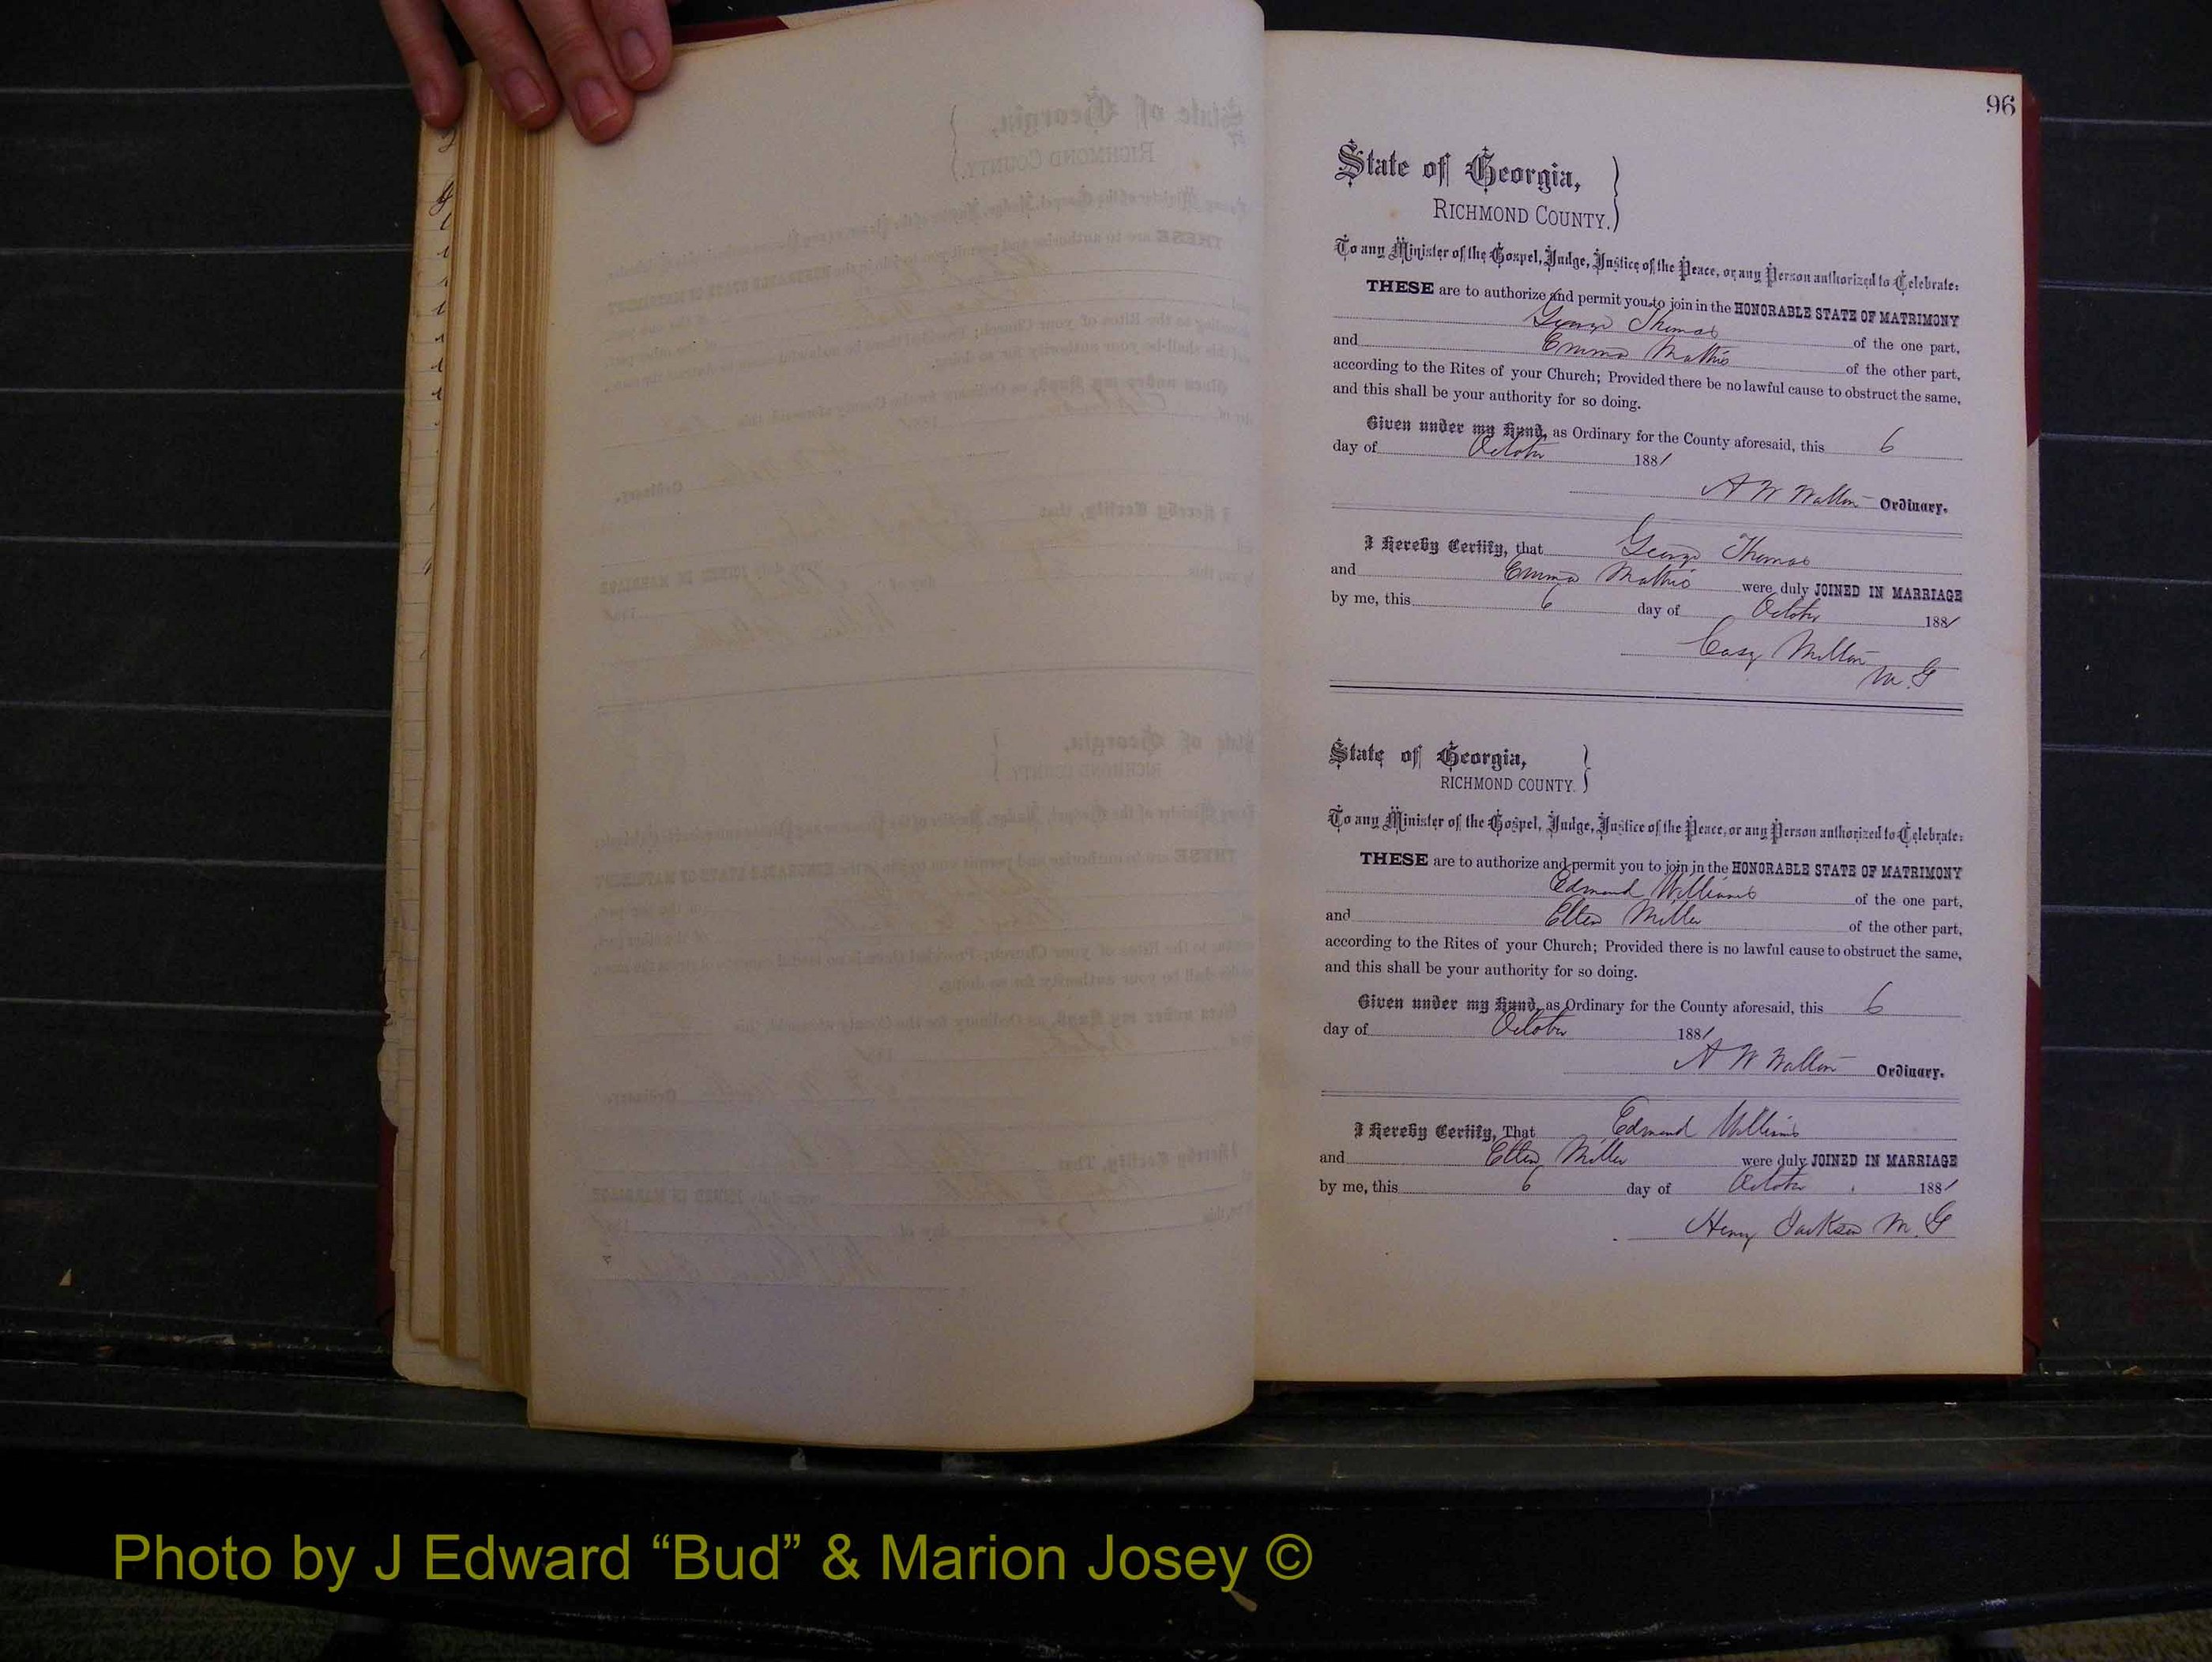 96
State of Georgia,
RICHMOND COUNTY.
To any Minister of the Gospel, Judge, Justice of the Peace, or any Person authorized to Celebrate:
THESE are to authorize and permit you to join in the HONORABLE STATE OF MATRIMONY
George Thomas of the one part,
and Emma Mathis of the other part,
according to the Rites of your Church; Provided there be no lawful cause to obstruct the same,
and this shall be your authority for so doing.
Given under my Hand, as Ordinary for the County aforesaid, this 6
day of October 1881
A W Walton Ordinary.
I Hereby Certify, that George Thomas
and Emma Mathis were duly JOINED IN MARRIAGE
by me, this 6 day of October 1881
Milton
M. G
State of Georgia,
RICHMOND COUNTY.
To any Minister of the Gospel, Judge, Justice of the Peace, or any Person authorized to Celebrate:
THESE are to authorize and permit you to join in the HONORABLE STATE OF MATRIMONY
Edmond Williams of the one part,
and Ellen Miller of the other part,
according to the Rites of your Church; Provided there is no lawful cause to obstruct the same,
and this shall be your authority for so doing.
Given under my Hand, as Ordinary for the County aforesaid, this 6
day of October 1881
A W Walton Ordinary.
I Hereby Certify, That Edmond Williams
and Ellen Miller were duly JOINED IN MARRIAGE
by me, this 6 day of October 1881
Henry Jackson M. G
Photo by J Edward “Bud” & Marion Josey ©